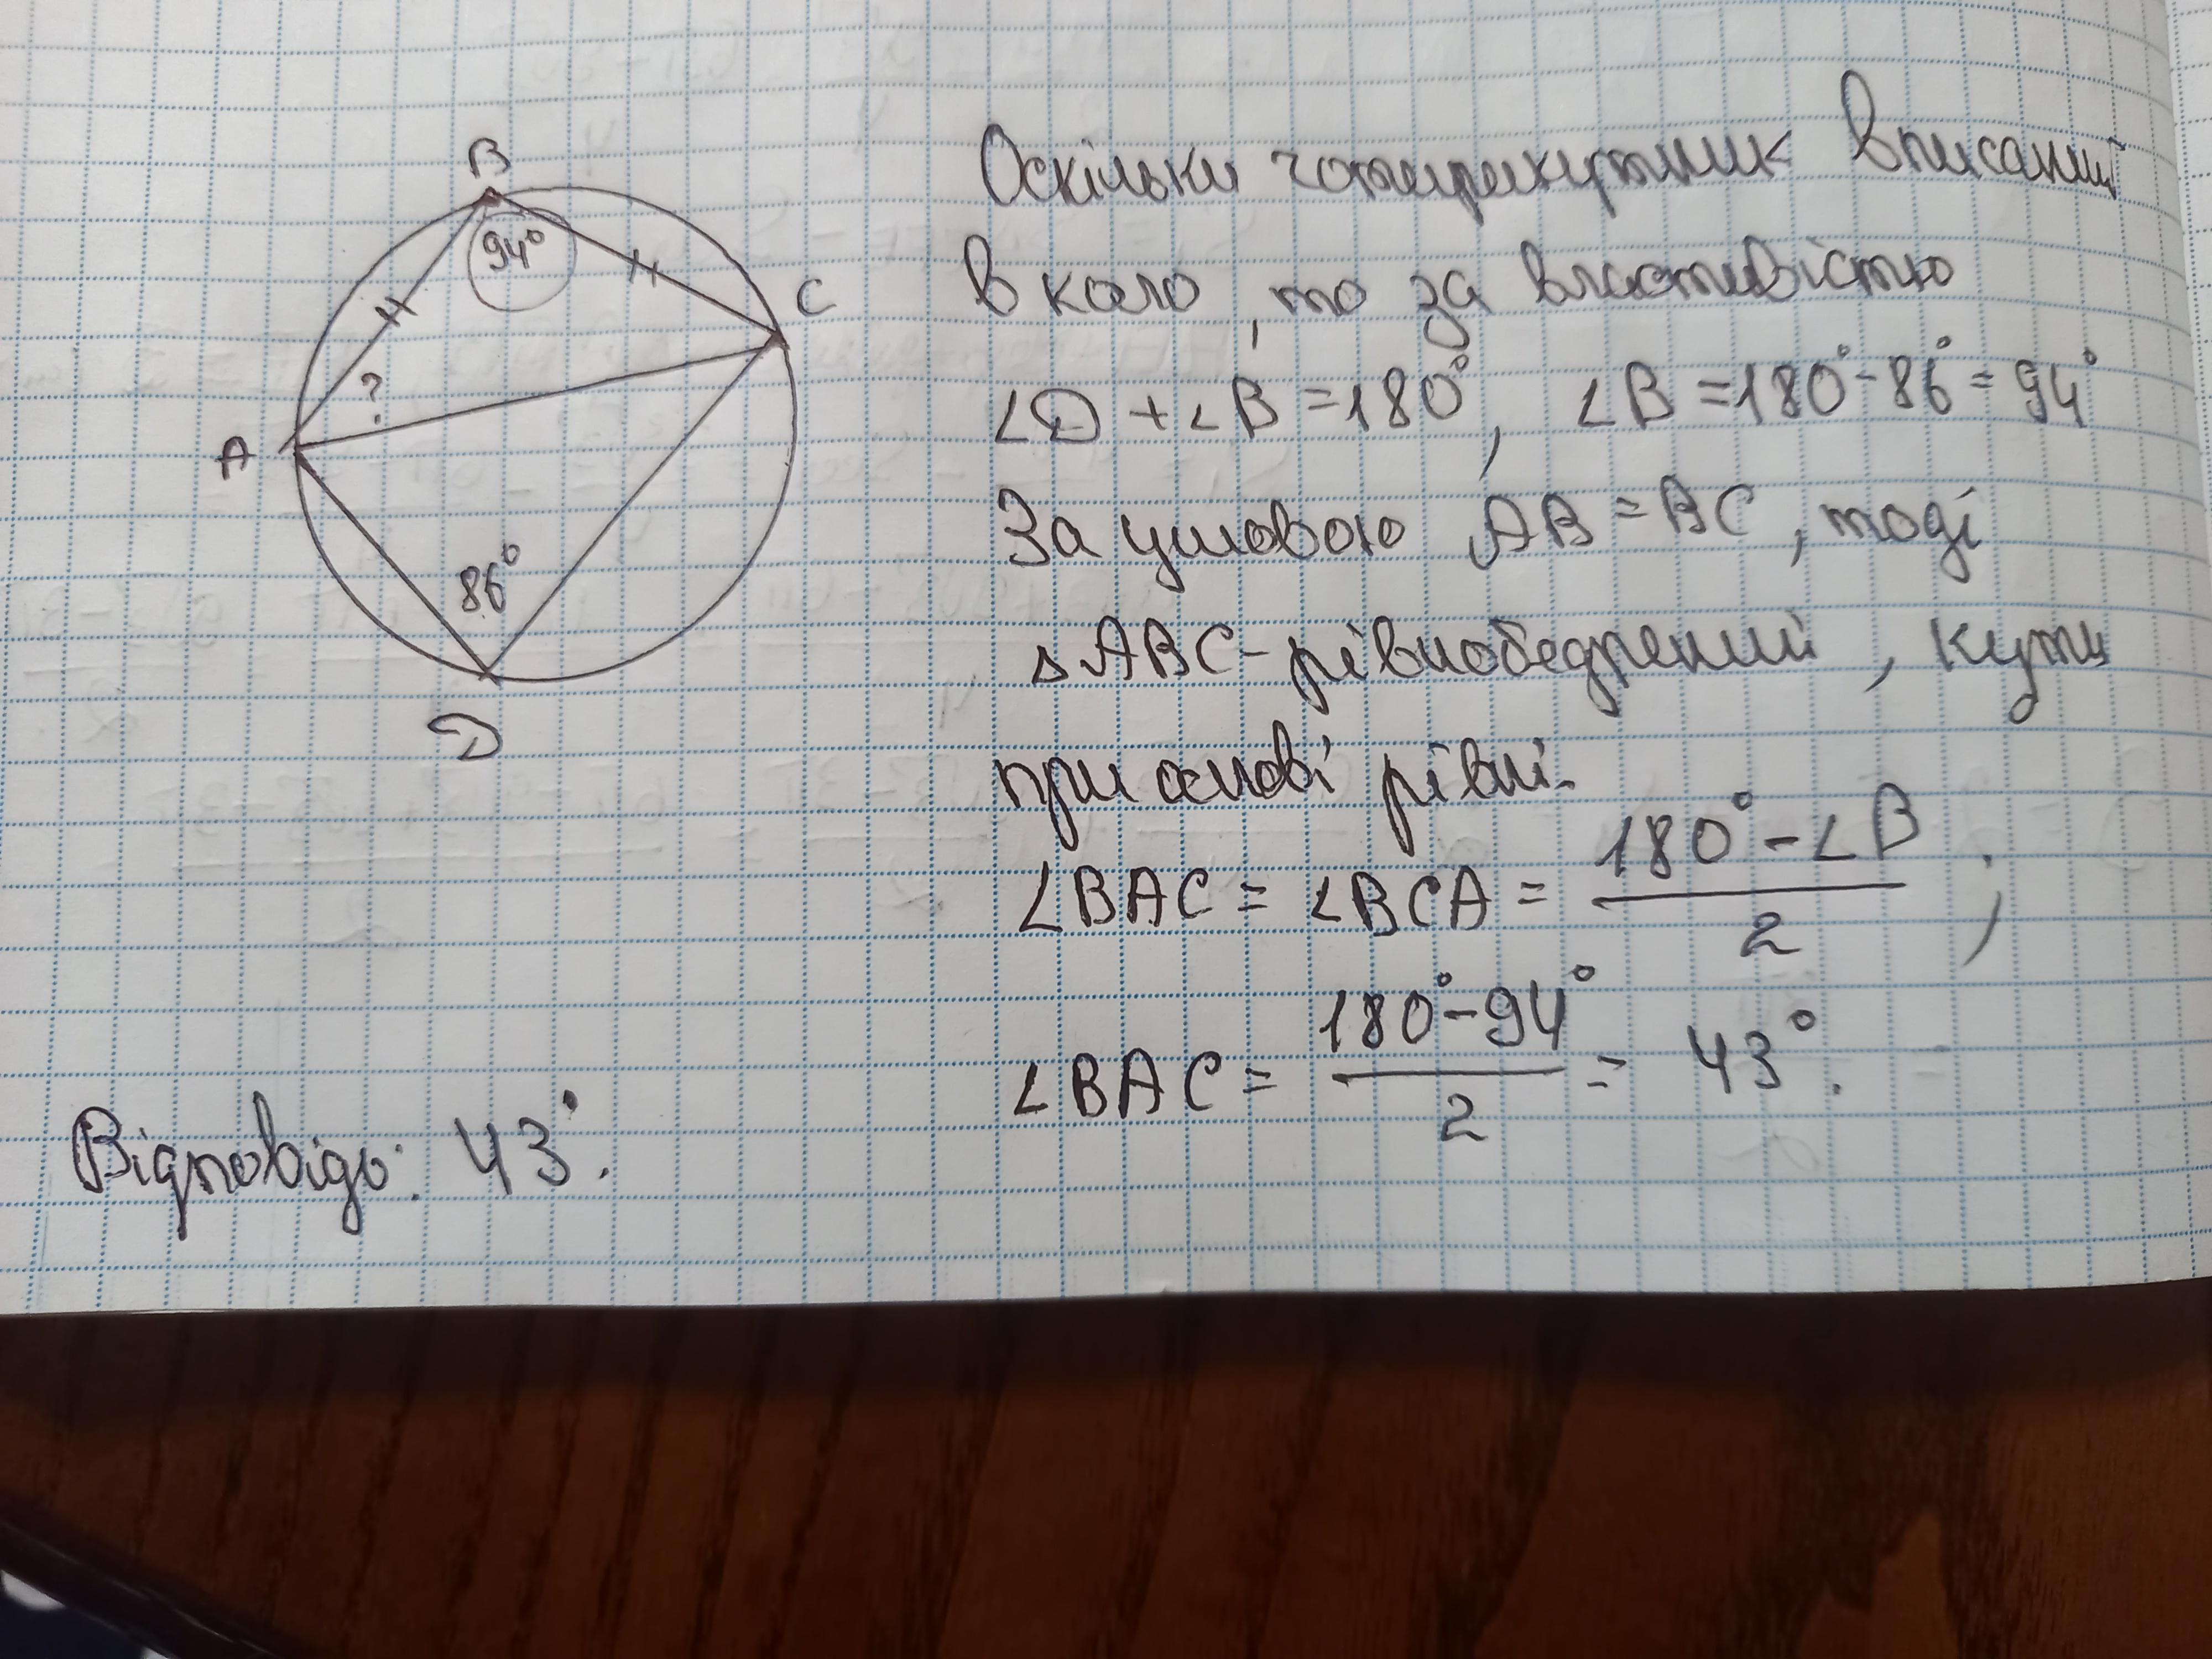 B
94°
C
?
A
86°
D
Оскільки чотирикутник вписаний
в коло, то за властивістю
∠D + ∠B = 180°, ∠B = 180° - 86° = 94°
За умовою AB = BC, тоді
△ABC - рівнобедрений, кути
при основі рівні.
∠BAC = ∠BCA = (180° - ∠B) / 2 ;
∠BAC = (180° - 94°) / 2 = 43°.
Відповідь: 43°.